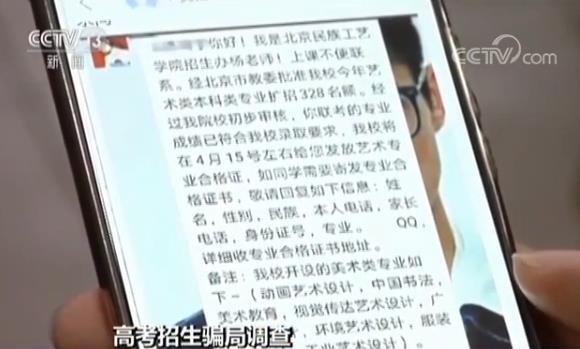 CCTV 13
新闻
CCTV.com
你好！我是北京民族工艺
学院招生办杨老师！上课不便联
系。经北京市教委批准我校今年艺
术类本科类专业扩招328名额。经
过我院校初步审核，你联考的专业
成绩已符合我校录取要求，我校将
在4月15号左右给您发放艺术专
业合格证，如同学需要寄发专业合
格证书，敬请回复如下信息：姓
名，性别，民族，本人电话，家长
电话，身份证号，专业。 QQ，
详细收专业合格证书地址。
备注：我校开设的美术类专业如
下-（动画艺术设计，中国书法，
美术教育，视觉传达艺术设计，广
计，环境艺术设计，服装
工业艺术设计）。
高考招生骗局调查